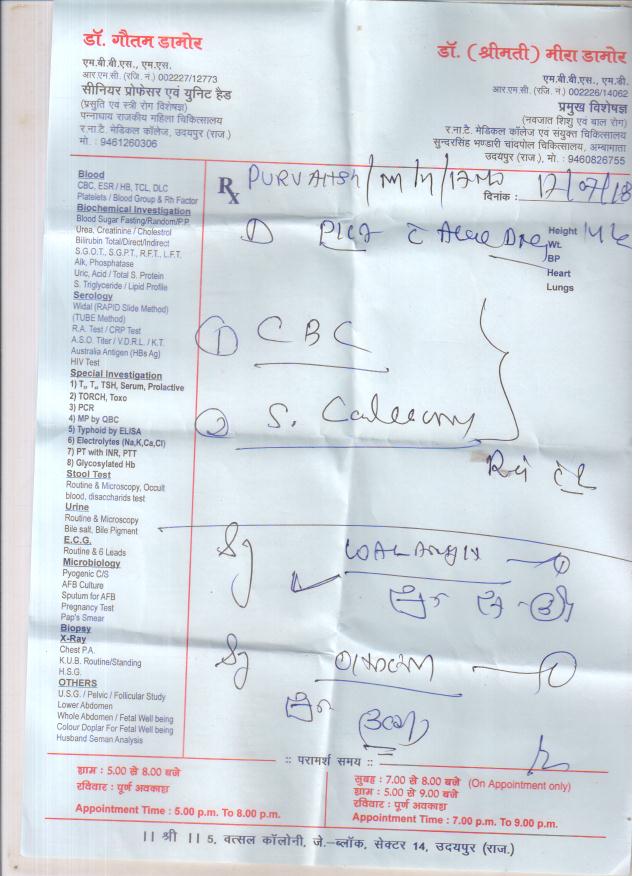 डॉ. गौतम डामोर
एम.बी.बी.एस., एम.एस.
आर.एम.सी. (रजि. नं.) 002227/12773
सीनियर प्रोफेसर एवं युनिट हैड
(प्रसुति एवं स्त्री रोग विशेषज्ञ)
पन्नाधाय राजकीय महिला चिकित्सालय
र.ना.टै. मेडिकल कॉलेज, उदयपुर (राज.)
मो. : 9461260306
डॉ. (श्रीमती) मीरा डामोर
एम.बी.बी.एस., एम.डी.
आर.एम.सी. (रजि. नं.) 002226/14062
प्रमुख विशेषज्ञ
(नवजात शिशु एवं बाल रोग)
र.ना.टै. मेडिकल कॉलेज एवं संयुक्त चिकित्सालय
सुन्दरसिंह भण्डारी चांदपोल चिकित्सालय, अम्बामाता
उदयपुर (राज.), मो. : 9460826755
Blood
CBC, ESR / HB, TCL, DLC
Platelets / Blood Group & Rh Factor
Biochemical Investigation
Blood Sugar Fasting/Random/P.P.
Urea, Creatinine / Cholestrol
Bilirubin Total/Direct/Indirect
S.G.O.T., S.G.P.T., R.F.T., L.F.T.
Alk, Phosphatase
Uric, Acid / Total S. Protein
S. Triglyceride / Lipid Profile
Serology
Widal (RAPID Slide Method)
(TUBE Method)
R.A. Test / CRP Test
A.S.O. Titer / V.D.R.L. / K.T.
Australia Antigen (HBs Ag)
HIV Test
Special Investigation
1) T₃, T₄, TSH, Serum, Prolactive
2) TORCH, Toxo
3) PCR
4) MP by QBC
5) Typhoid by ELISA
6) Electrolytes (Na,K,Ca,Cl)
7) PT with INR, PTT
8) Glycosylated Hb
Stool Test
Routine & Microscopy, Occult
blood, disaccharids test
Urine
Routine & Microscopy
Bile salt, Bile Pigment
E.C.G.
Routine & 6 Leads
Microbiology
Pyogenic C/S
AFB Culture
Sputum for AFB
Pregnancy Test
Pap's Smear
Biopsy
X-Ray
Chest P.A.
K.U.B. Routine/Standing
H.S.G.
OTHERS
U.S.G. / Pelvic / Follicular Study
Lower Abdomen
Whole Abdomen / Fetal Well being
Colour Doplar For Fetal Well being
Husband Seman Analysis
Rx PURVANSH
दिनांक : 12/07/18
Height
Wt.
BP
Heart
Lungs
① CBC
② S.
:: परामर्श समय ::
शाम : 5.00 से 8.00 बजे
रविवार : पूर्ण अवकाश
Appointment Time : 5.00 p.m. To 8.00 p.m.
सुबह : 7.00 से 8.00 बजे (On Appointment only)
शाम : 5.00 से 9.00 बजे
रविवार : पूर्ण अवकाश
Appointment Time : 7.00 p.m. To 9.00 p.m.
।। श्री ।। 5, वत्सल कॉलोनी, जे.-ब्लॉक, सेक्टर 14, उदयपुर (राज.)